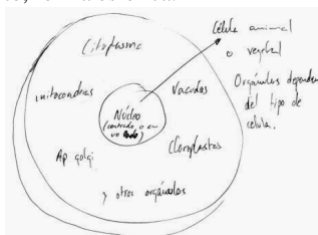 Citoplasma
Célula animal
o vegetal
Orgánulos dependen
del tipo de
célula.
mitocondrias
Vacuolas
Núcleo
(centrado o en
un lado)
Ap golgi
Cloroplastos
y otros orgánulos